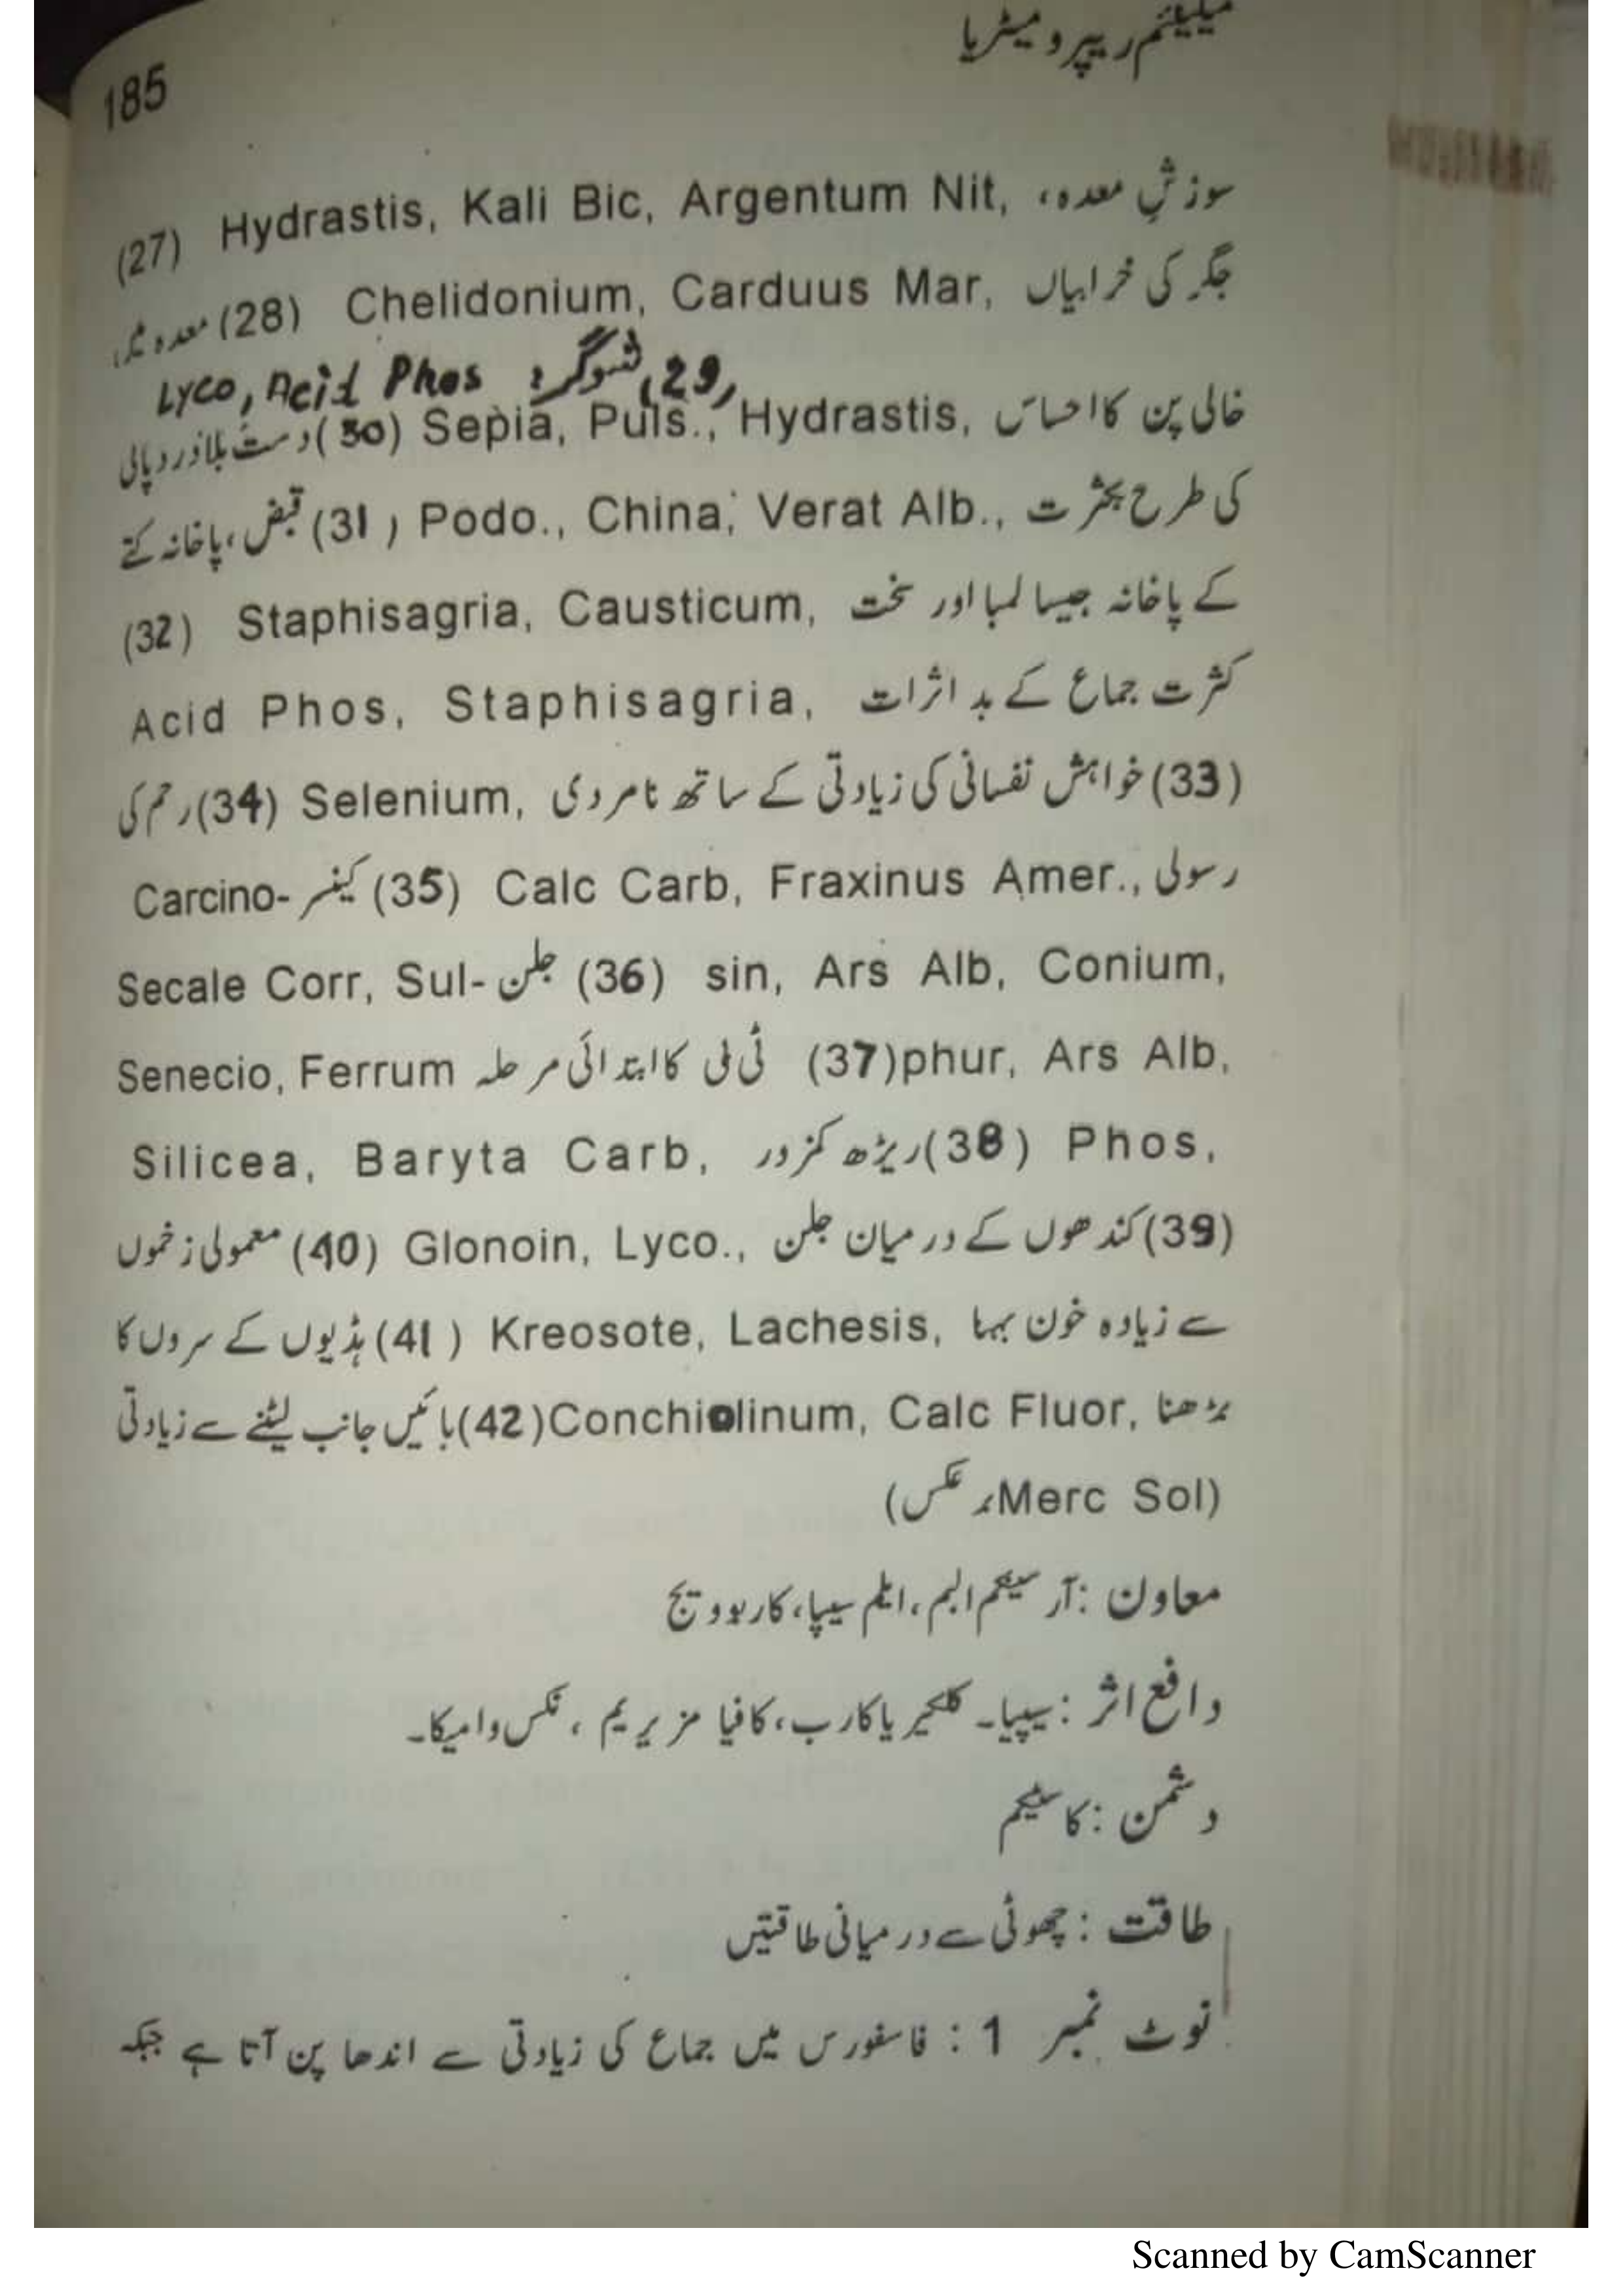 میلینئم ریپرومیٹریا
185
سوزشِ معدہ، Hydrastis, Kali Bic, Argentum Nit, (27)
جگر کی خرابیاں Chelidonium, Carduus Mar, (28) معدہ میں
(29) شوگر: Lyco, Acid Phos
خالی پن کا احساس Sepia, Puls., Hydrastis, (30) دست بلا درد پانی
کی طرح بکثرت Podo., China, Verat Alb., (31) قبض، پاخانہ کتے
کے پاخانہ جیسا لمبا اور سخت Staphisagria, Causticum, (32)
کثرت جماع کے بد اثرات Acid Phos, Staphisagria,
(33) خواہش نفسانی کی زیادتی کے ساتھ نامردی Selenium, (34) رحم کی
رسولی Calc Carb, Fraxinus Amer., (35) کینسر Carcino-
sin, Ars Alb, Conium, (36) جلن Secale Corr, Sul-
phur, Ars Alb, (37) ٹی بی کا ابتدائی مرحلہ Senecio, Ferrum
Phos, (38) ریڑھ کمزور Silicea, Baryta Carb,
(39) کندھوں کے درمیان جلن Glonoin, Lyco., (40) معمولی زخموں
سے زیادہ خون بہنا Kreosote, Lachesis, (41) ہڈیوں کے سروں کا
بڑھنا Conchiolinum, Calc Fluor, (42) بائیں جانب لیٹنے سے زیادتی
(Merc Sol برعکس)
معاون : آرسینکم البم، ایلم سیپا، کاربوویج
دافع اثر : سیپیا۔ کلکیریا کارب، کافیا مزیریم، نکس وامیکا۔
دشمن : کاسٹیکم
طاقت : چھوٹی سے درمیانی طاقتیں
نوٹ نمبر 1 : فاسفورس میں جماع کی زیادتی سے اندھا پن آتا ہے جبکہ
Scanned by CamScanner